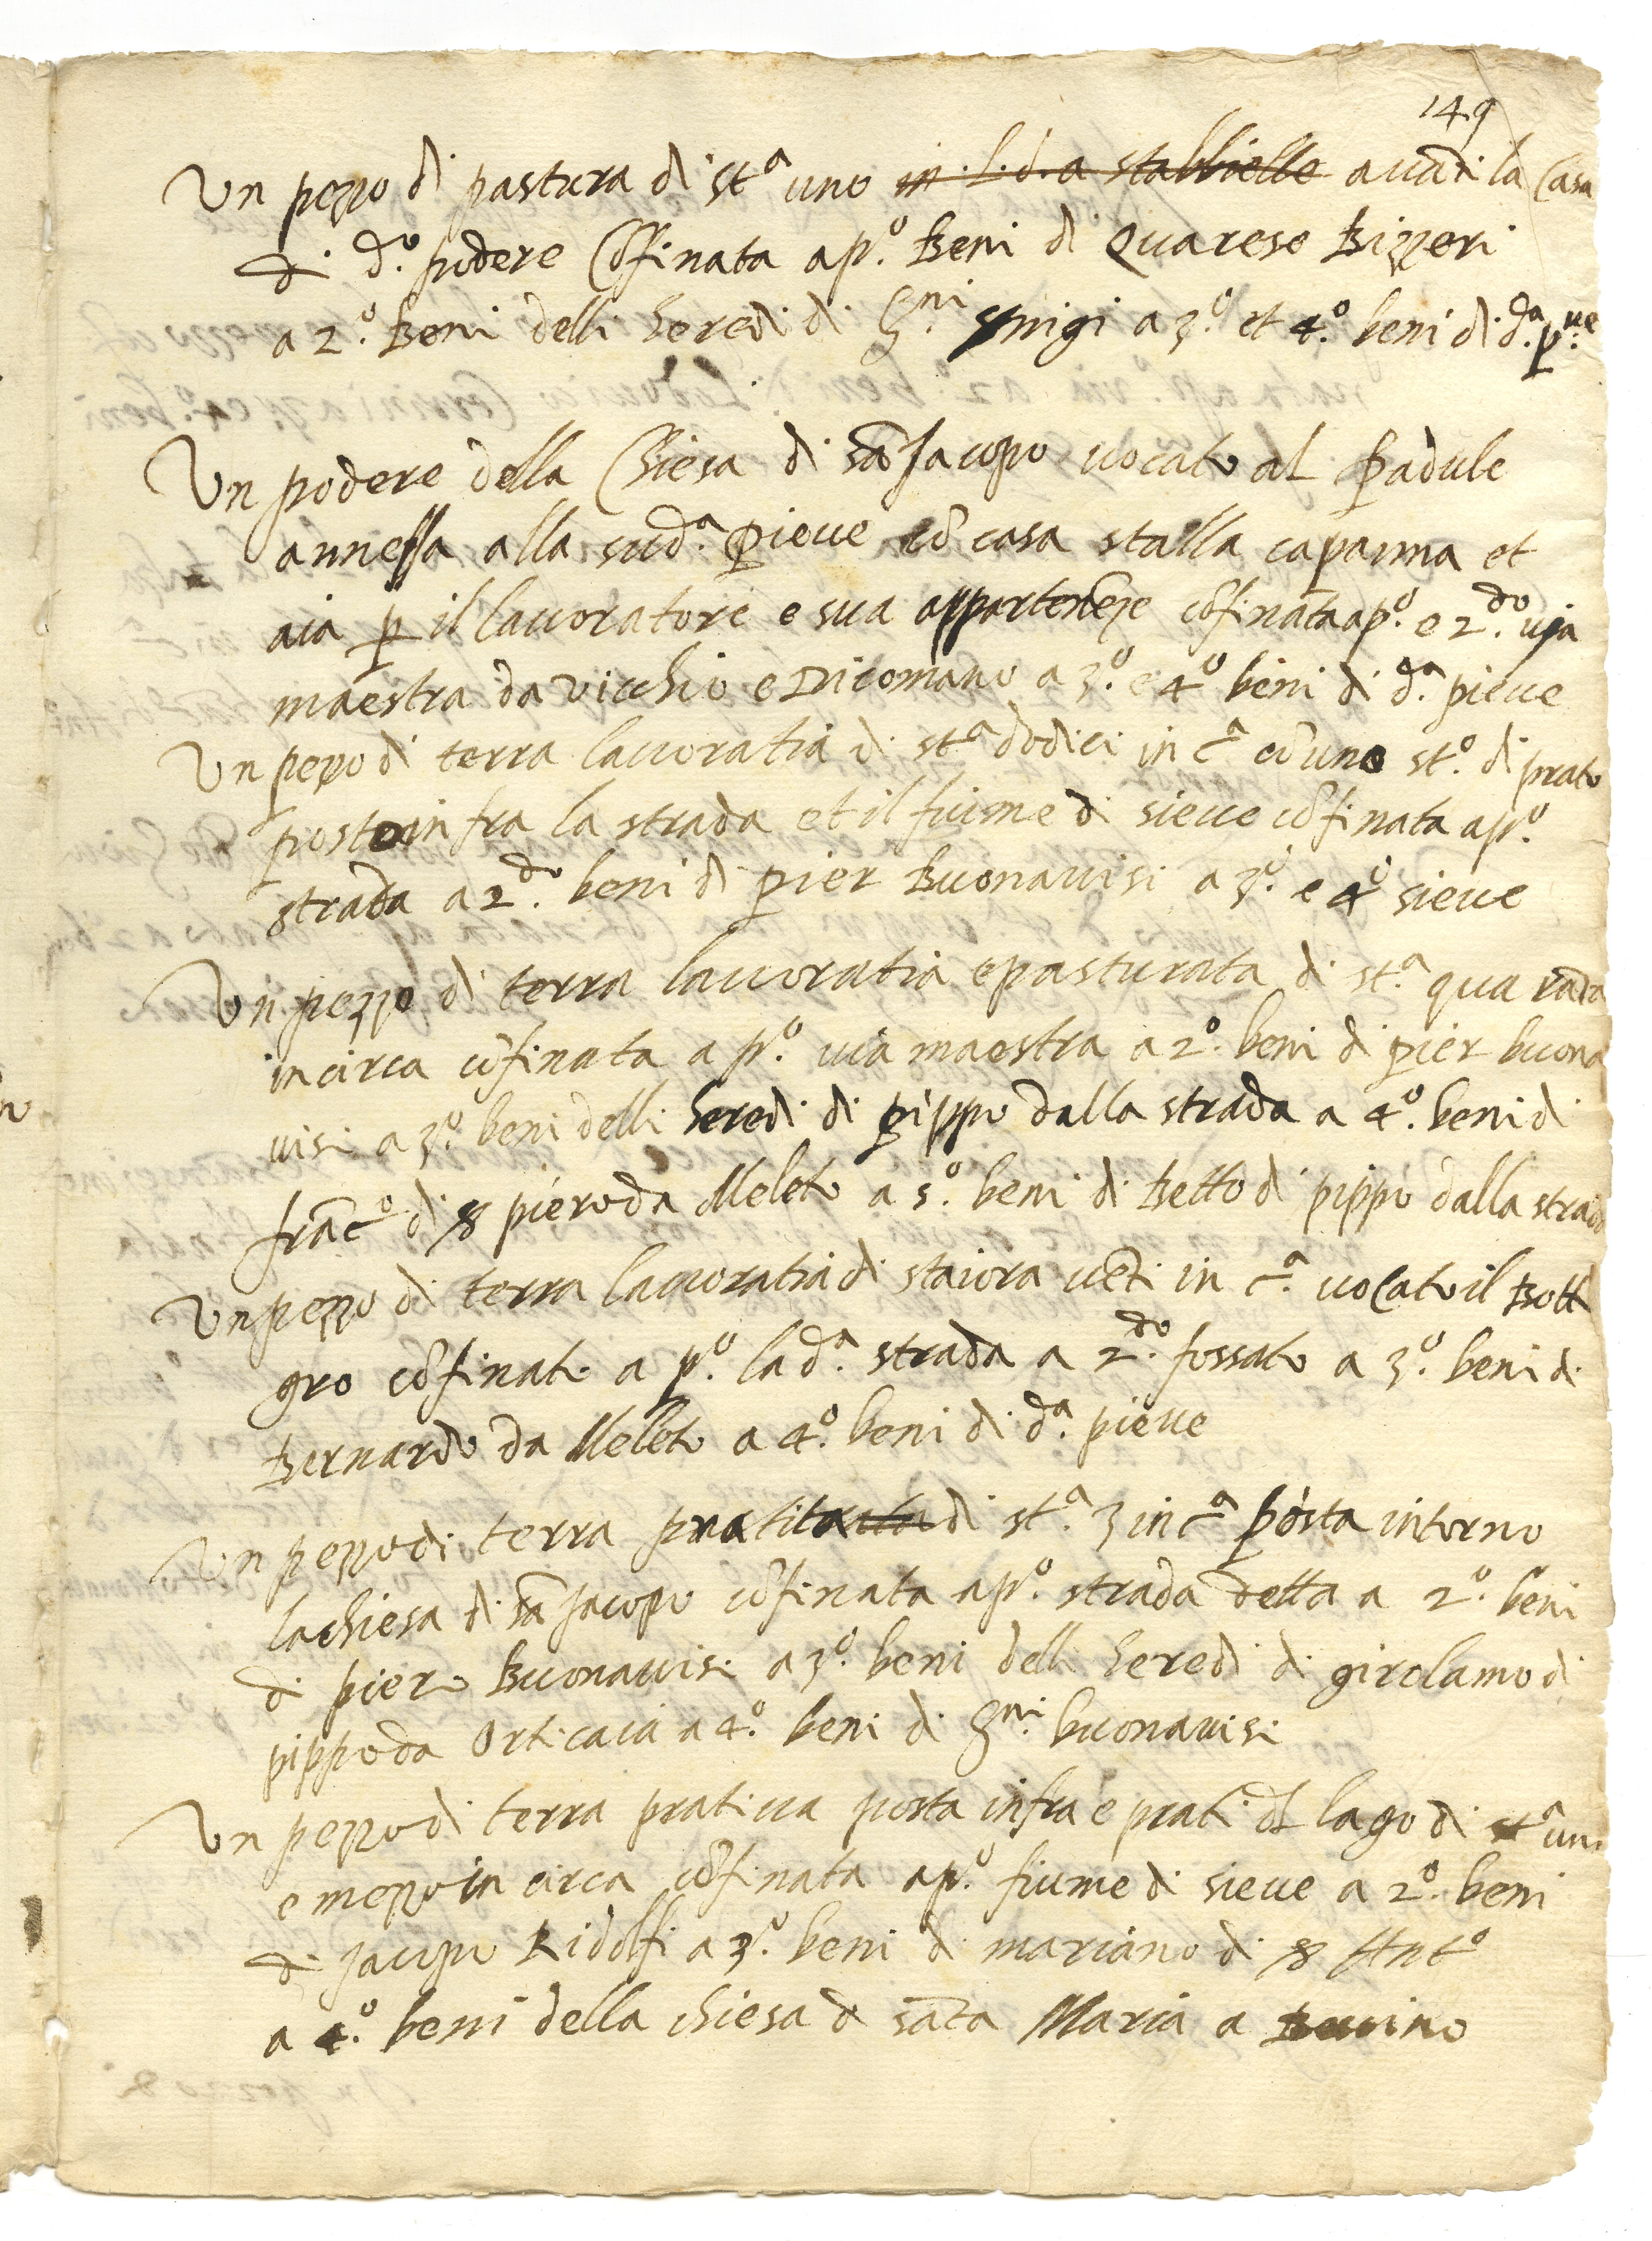 149
Un pezzo di pastura di st.ª uno in l. d. a stabbielle auãti la Casa
di d.º podere Cõfinata a pº. Beni di Quareso Bizzeri
a 2.º Beni delli heredi di Gni a 3.º et 4.º beni di d.ª p.ue
Un podere della Chiesa di sã Jacopo uocato al Padule
annessa alla sud.ª Pieue cõ casa stalla capanna et
aia p il lauoratore e sua appartenẽze cõfinata a pº. e 2.do uia
maestra da Vicchio e Dicomano a 3.º e 4.º beni di d.ª pieue
Un pezzo di terra lauoratia di st.ª dodici in c.ª cõ uno st.º di prato
posto in fra la strada et il fiume di sieue cõfinata a pº.
strada a 2.do beni di Pier Buonauisi a 3.º e 4.º sieue
Un pezzo di terra lauoratia e pasturata di st.ª quarãta
in circa cõfinata a pº. uia maestra a 2.º beni di Pier buona
uisi a 3.º beni delli heredi di Pippo dalla strada a 4.º beni di
frãc.º di s piero da Meleto a 5.º beni di Betto di pippo dalla strada
Un pezzo di terra lauoratia di staiora uẽti in c.ª uocato il Bott
gro cõfinato a pº. la d.ª strada a 2.do fossato a 3.º beni di
Bernardo da Meleto a 4.º beni di d.ª pieue
Un pezzo di terra di st.ª 3 in c.ª posta intorno
la chiesa di sã Jacopo cõfinata a pº. strada detta a 2.º beni
di piero Buonauisi a 3.º beni delli heredi di girolamo di
pippo da Orticaia a 4.º beni di Gni buonauisi
Un pezzo di terra pratiua posta infra e prati dl lago di st.ª uno
e mezzo in circa cõfinata a pº. fiume di sieue a 2.º beni
di Jacopo Ridolfi a 3.º beni di mariano di s Ant.º
a 4.º beni della chiesa di sãta Maria a